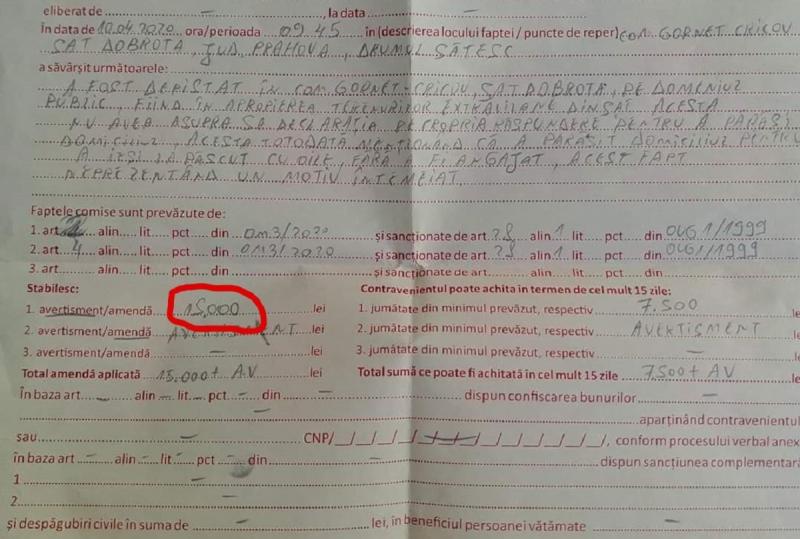 eliberat de ........ – ........, la data ........ – ........
În data de 10.04.2020 ora/perioada 09.45 în (descrierea locului faptei / puncte de reper) COM. GORNET CRICOV
SAT DOBROTA, JUD. PRAHOVA, DRUMUL SĂTESC
a săvârșit următoarele:
A FOST DEPISTAT ÎN COM. GORNET-CRICOV, SAT DOBROTA, PE DOMENIUL
PUBLIC, FIIND ÎN APROPIEREA TERENURILOR EXTRAVILANE DIN SAT ACESTA
NU AVEA ASUPRA SA DECLARAȚIA PE PROPRIA RĂSPUNDERE PENTRU A PARASI
DOMICILIUL, ACESTA TOTODATĂ MENȚIONAND CĂ A PARASIT DOMICILIUL PENTRU
A IEȘI LA PĂSCUT CU OILE, FĂRĂ A FI ANGAJAT, ACEST FAPT
NEPREZENTÂND UN MOTIV ÎNTEMEIAT
Faptele comise sunt prevăzute de:
1. art. alin. lit. pct. din OM3/2020 și sancționate de art. 28 alin 1 lit. pct. din OUG 1/1999
2. art. 4 alin. lit. pct. din OM3/2020 și sancționate de art. 28 alin 1 lit. pct. din OUG 1/1999
3. art. alin. lit. pct. din și sancționate de art. alin. lit. pct. din
Stabilesc: Contravenientul poate achita în termen de cel mult 15 zile:
1. avertisment/amendă 15.000 lei 1. jumătate din minimul prevăzut, respectiv 7.500
2. avertisment/amendă AVERTISMENT lei 2. jumătate din minimul prevăzut, respectiv AVERTISMENT le
3. avertisment/amendă – lei 3. jumătate din minimul prevăzut, respectiv – le
Total amendă aplicată 15.000 + AV lei Total sumă ce poate fi achitată în cel mult 15 zile 7.500 + AV le
În baza art – alin – lit. – pct. – din – dispun confiscarea bunurilor –
– aparținând contravenientul
sau – CNP/_/_/_/_/_/_/_/_/_/_/_/_/_/, conform procesului verbal anex
în baza art – alin – lit – pct – din – dispun sancțiunea complementară
1 –
2 –
și despăgubiri civile în suma de – lei, în beneficiul persoanei vătămate –